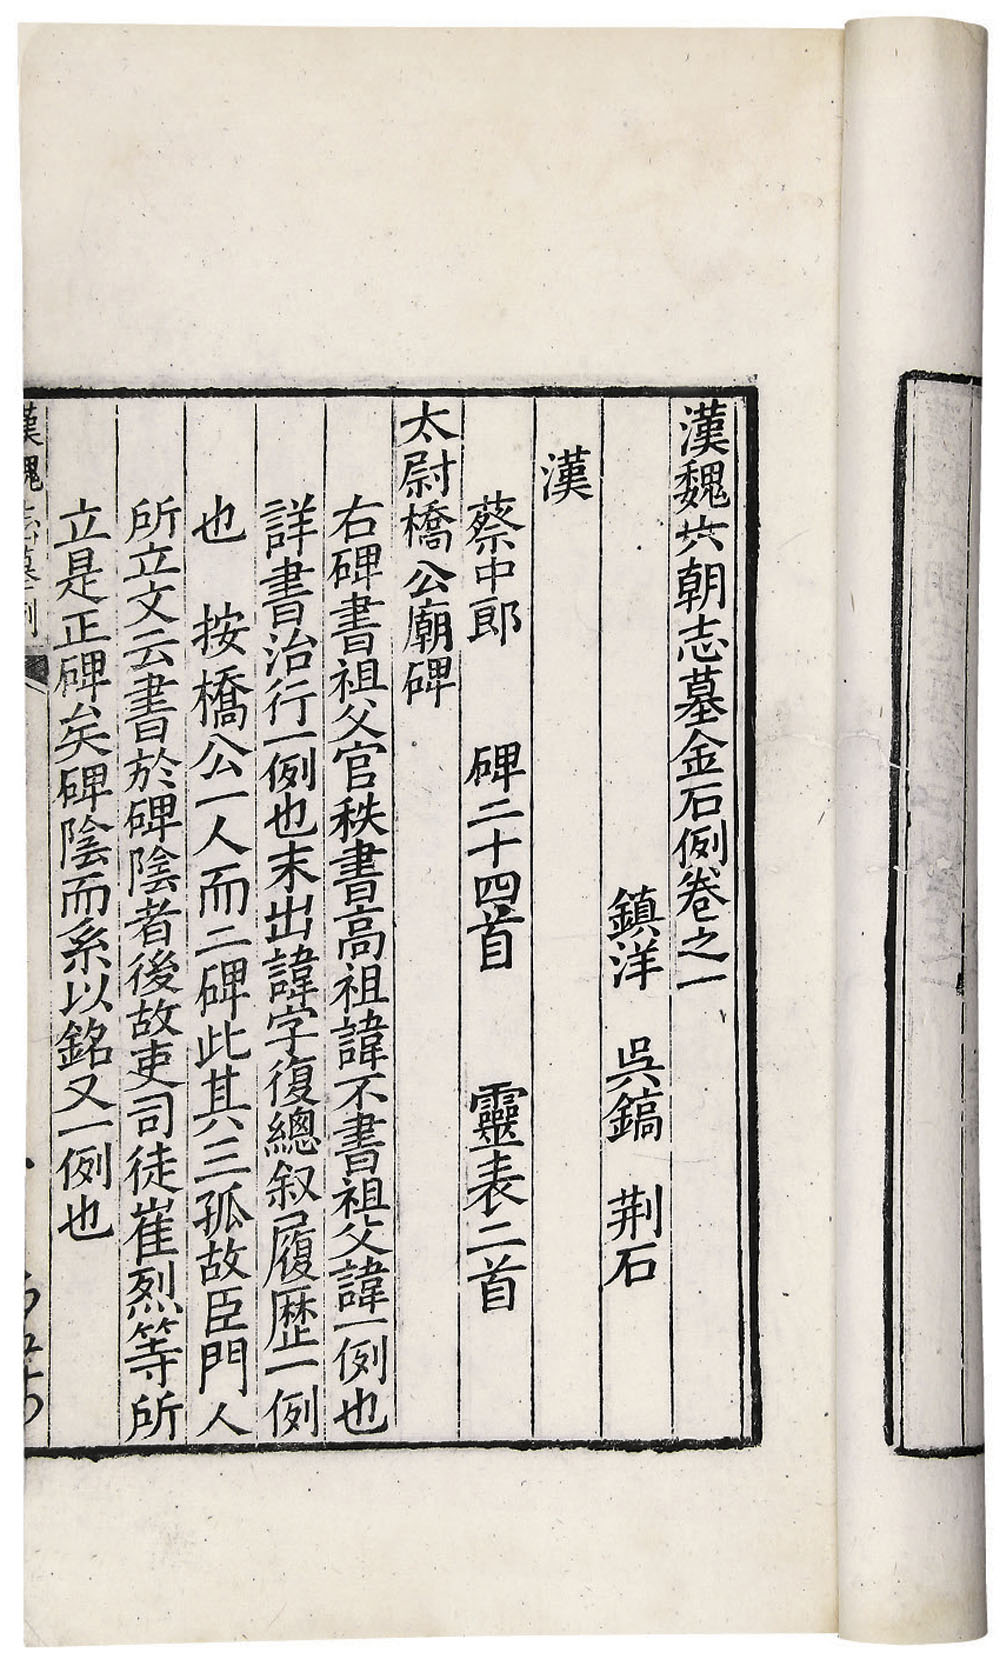 漢魏六朝志墓金石例卷之一
鎮洋 吳鎬 荆石
漢
蔡中郎 碑二十四首 靈表二首
太尉橋公廟碑
右碑書祖父官秩書高祖諱不書祖父諱一例也
詳書治行一例也末出諱字復總叙履歷一例
也 按橋公一人而二碑此其六三孤故臣門人
所立文云書於碑陰者後故吏司徒崔烈等所
立是正碑矣碑陰而系以銘又一例也
漢魏志墓例